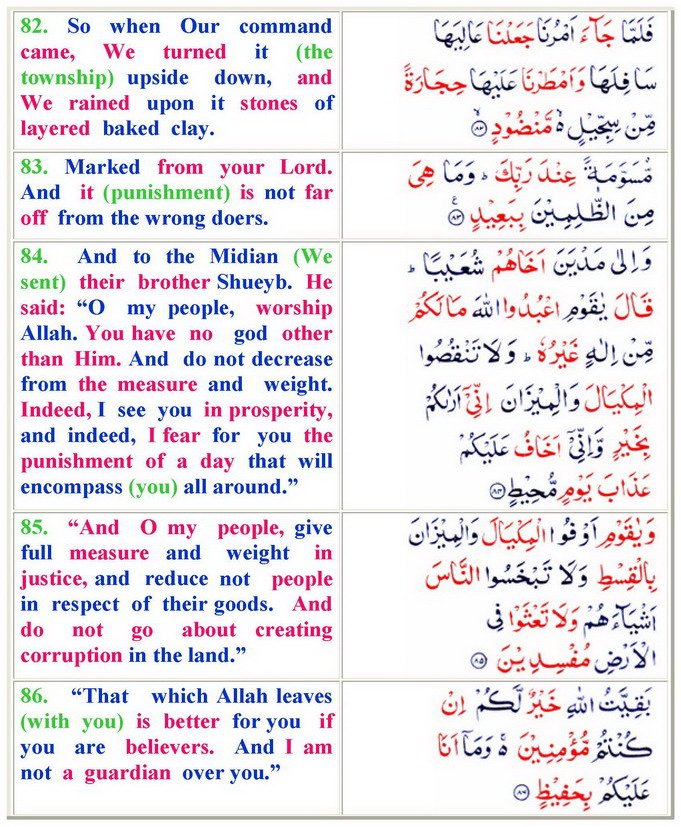 82. So when Our command
came, We turned it (the
township) upside down, and
We rained upon it stones of
layered baked clay.
فَلَمَّا جَآءَ اَمْرُنَا جَعَلْنَا عَالِيَهَا
سَافِلَهَا وَاَمْطَرْنَا عَلَيْهَا حِجَارَةً
مِّنْ سِجِّيْلٍ ۙ مَّنْضُوْدٍ ۙ‏﴿۸۲﴾
83. Marked from your Lord.
And it (punishment) is not far
off from the wrong doers.
مُّسَوَّمَةً عِنْدَ رَبِّكَ ؕ وَمَا هِىَ
مِنَ الظّٰلِمِيْنَ بِبَعِيْدٍ ﴿۸۳﴾
84. And to the Midian (We
sent) their brother Shueyb. He
said: “O my people, worship
Allah. You have no god other
than Him. And do not decrease
from the measure and weight.
Indeed, I see you in prosperity,
and indeed, I fear for you the
punishment of a day that will
encompass (you) all around.”
وَاِلٰى مَدْيَنَ اَخَاهُمْ شُعَيْبًا ؕ
قَالَ يٰقَوْمِ اعْبُدُوا اللّٰهَ مَا لَكُمْ
مِّنْ اِلٰهٍ غَيْرُهٗ ؕ وَلَا تَنْقُصُوا
الْمِكْيَالَ وَالْمِيْزَانَ اِنِّىْۤ اَرٰٮكُمْ
بِخَيْرٍ وَّاِنِّىْۤ اَخَافُ عَلَيْكُمْ
عَذَابَ يَوْمٍ مُّحِيْطٍ ﴿۸۴﴾
85. “And O my people, give
full measure and weight in
justice, and reduce not people
in respect of their goods. And
do not go about creating
corruption in the land.”
وَيٰقَوْمِ اَوْفُوا الْمِكْيَالَ وَالْمِيْزَانَ
بِالْقِسْطِ وَلَا تَبْخَسُوا النَّاسَ
اَشْيَآءَهُمْ وَلَا تَعْثَوْا فِى
الْاَرْضِ مُفْسِدِيْنَ ﴿۸۵﴾
86. “That which Allah leaves
(with you) is better for you if
you are believers. And I am
not a guardian over you.”
بَقِيَّتُ اللّٰهِ خَيْرٌ لَّكُمْ اِنْ
كُنْتُمْ مُّؤْمِنِيْنَ ۚ وَمَاۤ اَنَا
عَلَيْكُمْ بِحَفِيْظٍ ﴿۸۶﴾